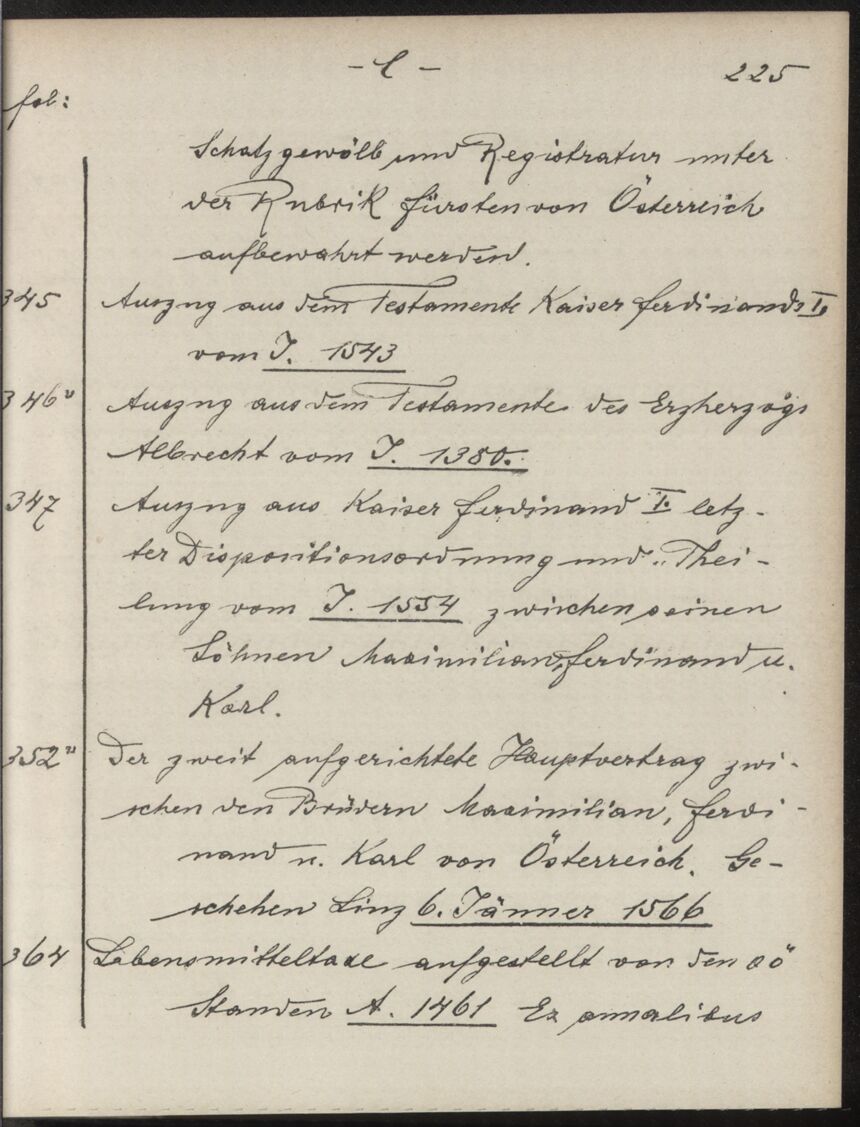 - l - 225
fol:
Schatzgewölb und Registratur unter
der Rubrik Fürsten von Österreich
aufbewahrt werden.
345 Auszug aus dem Testamente Kaiser Ferdinands I.
vom J. 1543
346v Auszug aus dem Testamente des Erzherzogs
Albrecht vom J. 1380.
347 Auszug aus Kaiser Ferdinand I. letz-
ter Dispositionsordnung und Thei-
lung vom J. 1554 zwischen seinen
Söhnen Maximilian, Ferdinand u.
Karl.
352v Der zweit aufgerichtete Hauptvertrag zwi-
schen den Brüdern Maximilian, Ferdi-
nand u. Karl von Österreich. Ge-
schehen Linz 6. Jänner 1566
364 Lebensmitteltaxe aufgestellt von den oö
Standen A. 1461 Ex annalibus